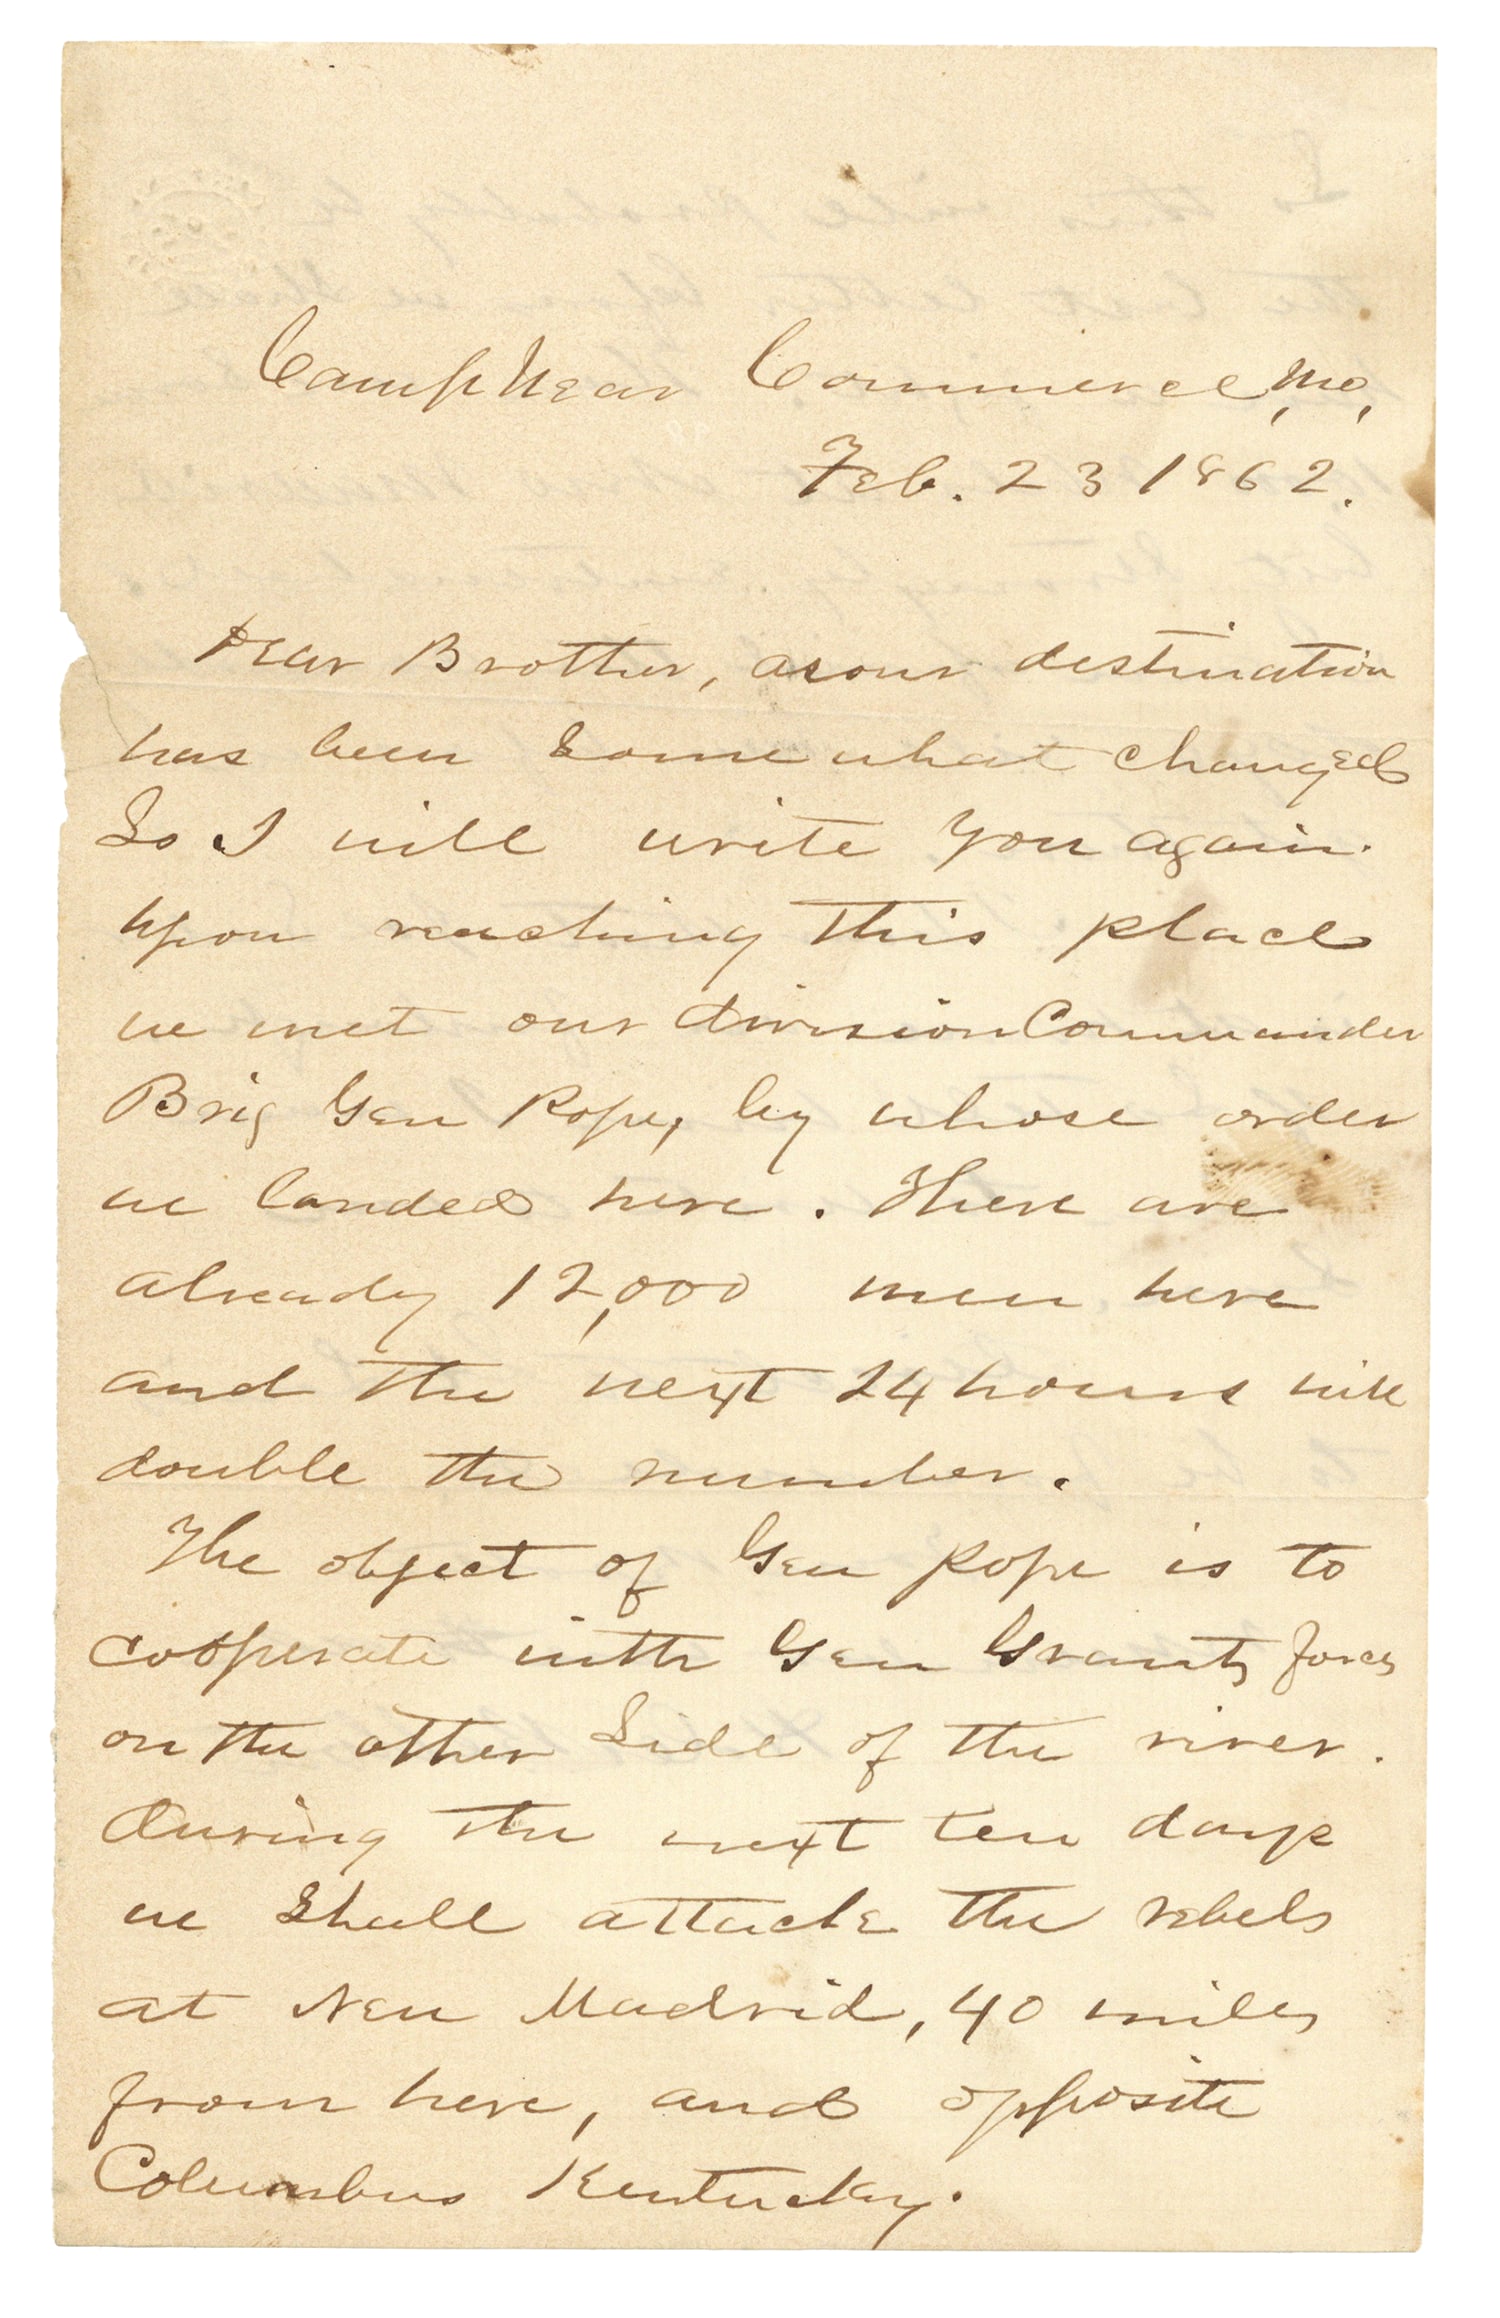 Camp Near Commerce, Mo,
Feb. 23 1862.
Dear Brother, as our destination
has been Somewhat Changed
So I will write you again.
upon reaching this place
we met our division Commander
Brig Gen Pope, by whose order
we landed here. There are
already 12,000 men here
and the next 24 hours will
double the number.
The object of Gen Pope is to
cooperate with Gen Grants forces
on the other Side of the river.
during the next ten days
we Shall attack the rebels
at New Madrid, 40 miles
from here, and opposite
Columbus Kentucky.